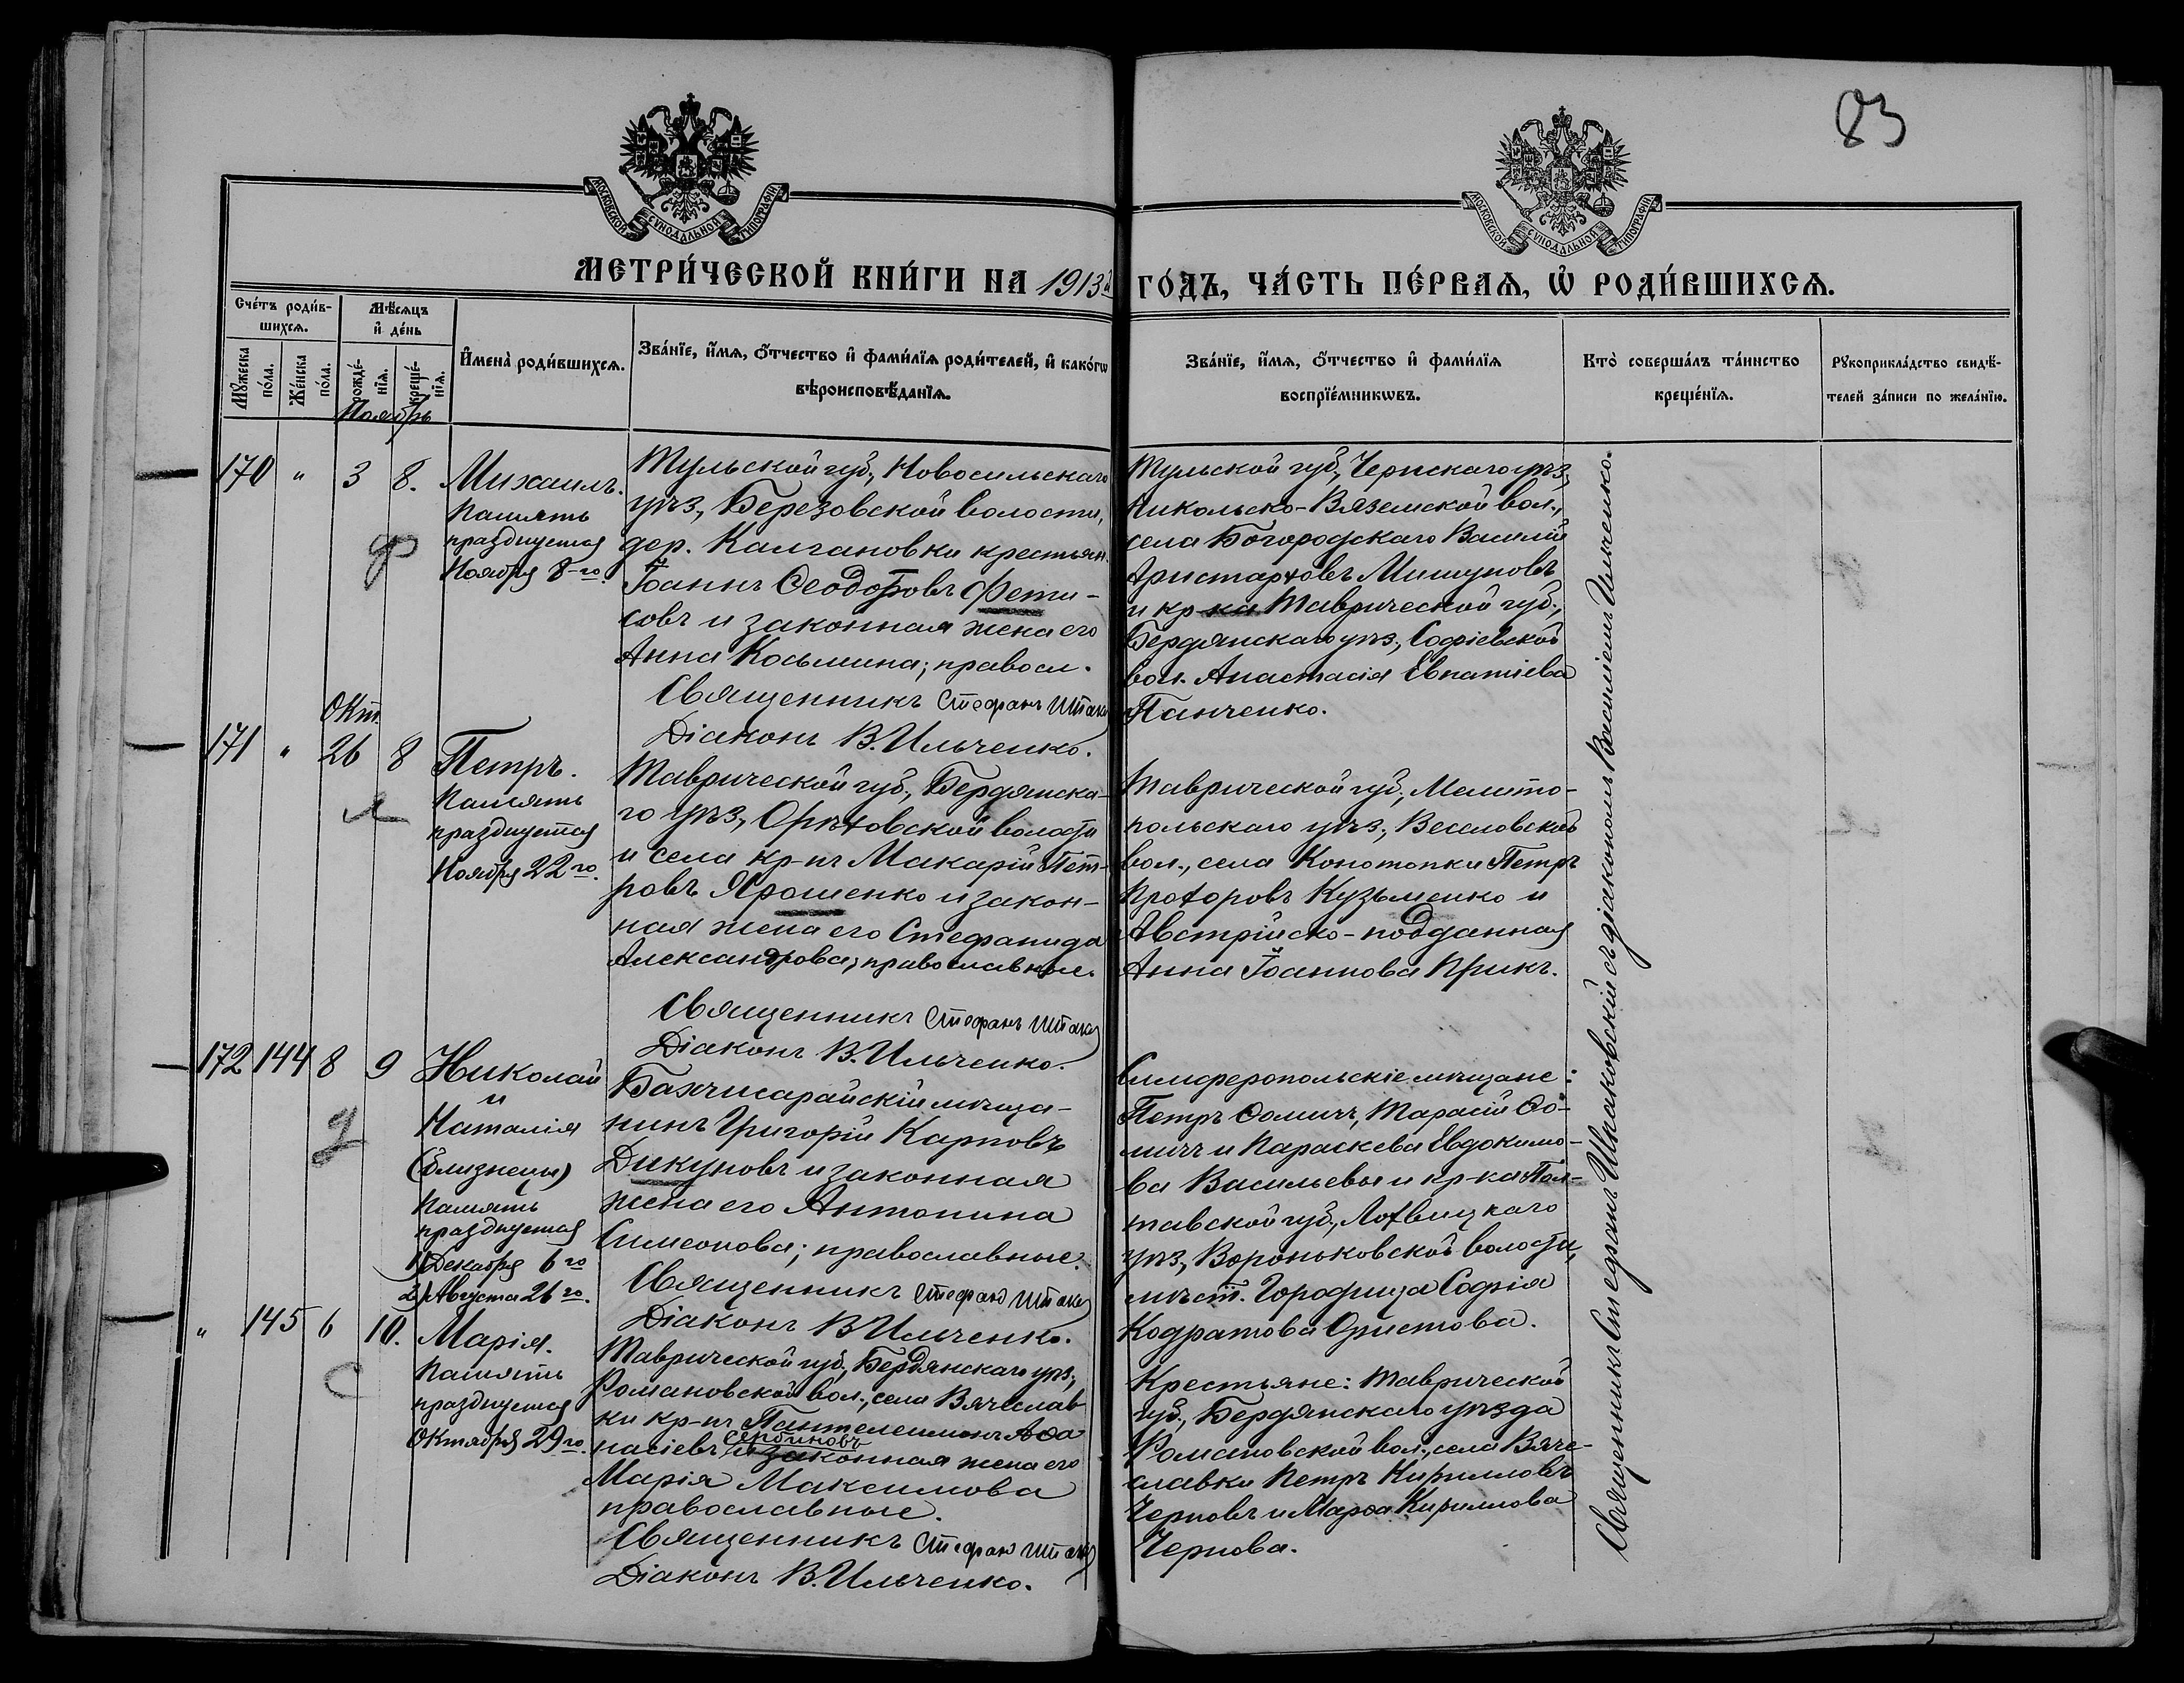 83
МОСКОВСКОЙ СѴНОДАЛЬНОЙ ТИПОГРАФІИ
МОСКОВСКОЙ СѴНОДАЛЬНОЙ ТИПОГРАФІИ
МЕТРИ́ЧЕСКОЙ КНИ́ГИ НА 1913й ГО́ДЪ, ЧА́СТЬ ПЕ́РВАѦ, Ѡ҆ РОДИ́ВШИХСѦ.
Сче́тъ роди́в-
шихсѧ.
Мꙋжеска
по́ла.
Же́нска
по́ла.
Мѣ́сѧцъ
и҆ де́нь
рожде́-
нїѧ.
креще́-
нїѧ.
И҆мена̀ роди́вшихсѧ.
Зва́нїе, и҆́мѧ, ѻ҆́тчество и҆ фами́лїѧ роди́телей, и҆ како́гѡ
вѣроисповѣ́данїѧ.
Зва́нїе, и҆́мѧ, ѻ҆́тчество и҆ фами́лїѧ
воспрїе́мникѡвъ.
Кто̀ соверша́лъ та́инство
креще́нїѧ.
Рꙋкоприкла́дство свидѣ́-
телей за́писи по жела́нїю.
Ноябрь
170 " 3 8.
Михаилъ.
Память
празднуется
Ноября 8-го.
ф
Тульской губ., Новосильскаго
уѣз., Березовской волости,
дер. Калгановки крестьян.
Іоаннъ Ѳеодоровъ Фети-
совъ и законная жена его
Анна Косьмина; правосл.
Священникъ Стефанъ Шпак
Діаконъ В. Ильченко.
Тульской губ., Чернскаго уѣз.,
Никольско-Вяземской вол.,
села Богородскаго Василій
Аристарховъ Мишуновъ
и кр-ка Таврической губ.,
Бердянскаго уѣз., Софіевской
вол. Анастасія Евпатіева
Панченко.
Окт.
171 " 26 8
Петръ.
Память
празднуется
Ноября 22го.
Таврической губ., Бердянска-
го уѣз., Орѣховской волости
и села кр-нъ Макарій Пет-
ровъ Ярошенко и закон-
ная жена его Стефанида
Александрова; православные.
Священникъ Стефанъ Шпак
Діаконъ В. Ильченко.
Таврической губ., Мелито-
польскаго уѣз., Веселовской
вол., села Конотопки Петръ
Прохоровъ Кузьменко и
Австрійско-подданная
Анна Іоаннова Прикъ.
172 144 8 9
Николай
и
Наталія
(близнецы)
Память
празднуется
1) Декабря 6го
2) Августа 26го.
д
Бахчисарайскій мѣща-
нинъ Григорій Карповъ
Дикуновъ и законная
жена его Антонина
Симеонова; православные.
Священникъ Стефанъ Шпак
Діаконъ В Ильченко.
Симферопольскіе мѣщане:
Петръ Ѳомичъ, Тарасій Ѳо-
мичъ и Параскева Евдокимо-
ва Васильевы и кр-ка Пол-
тавской губ., Лохвицкаго
уѣз., Вороньковской волости,
мѣст. Городища Софія
Кодратова Христова.
" 145 6 10.
Марія.
Память
празднуется
Октября 29го.
С
Таврической губ., Бердянскаго уѣз.,
Романовской вол., села Вячеслав
ки кр-нъ Пантелеимонъ Аѳа
Сербиновъ
насіевъ и законная жена его
Марія Максимова
православные.
Священникъ Стефанъ Шпак
Діаконъ В. Ильченко.
Крестьяне: Таврической
губ., Бердянскаго уѣзда
Романовской вол., села Вяче-
славки Петръ Кирилловъ
Черновъ и Марѳа Кириллова
Чернова.
Священникъ Стефанъ Шпаковскій съ діакономъ Василіемъ Ильченко.